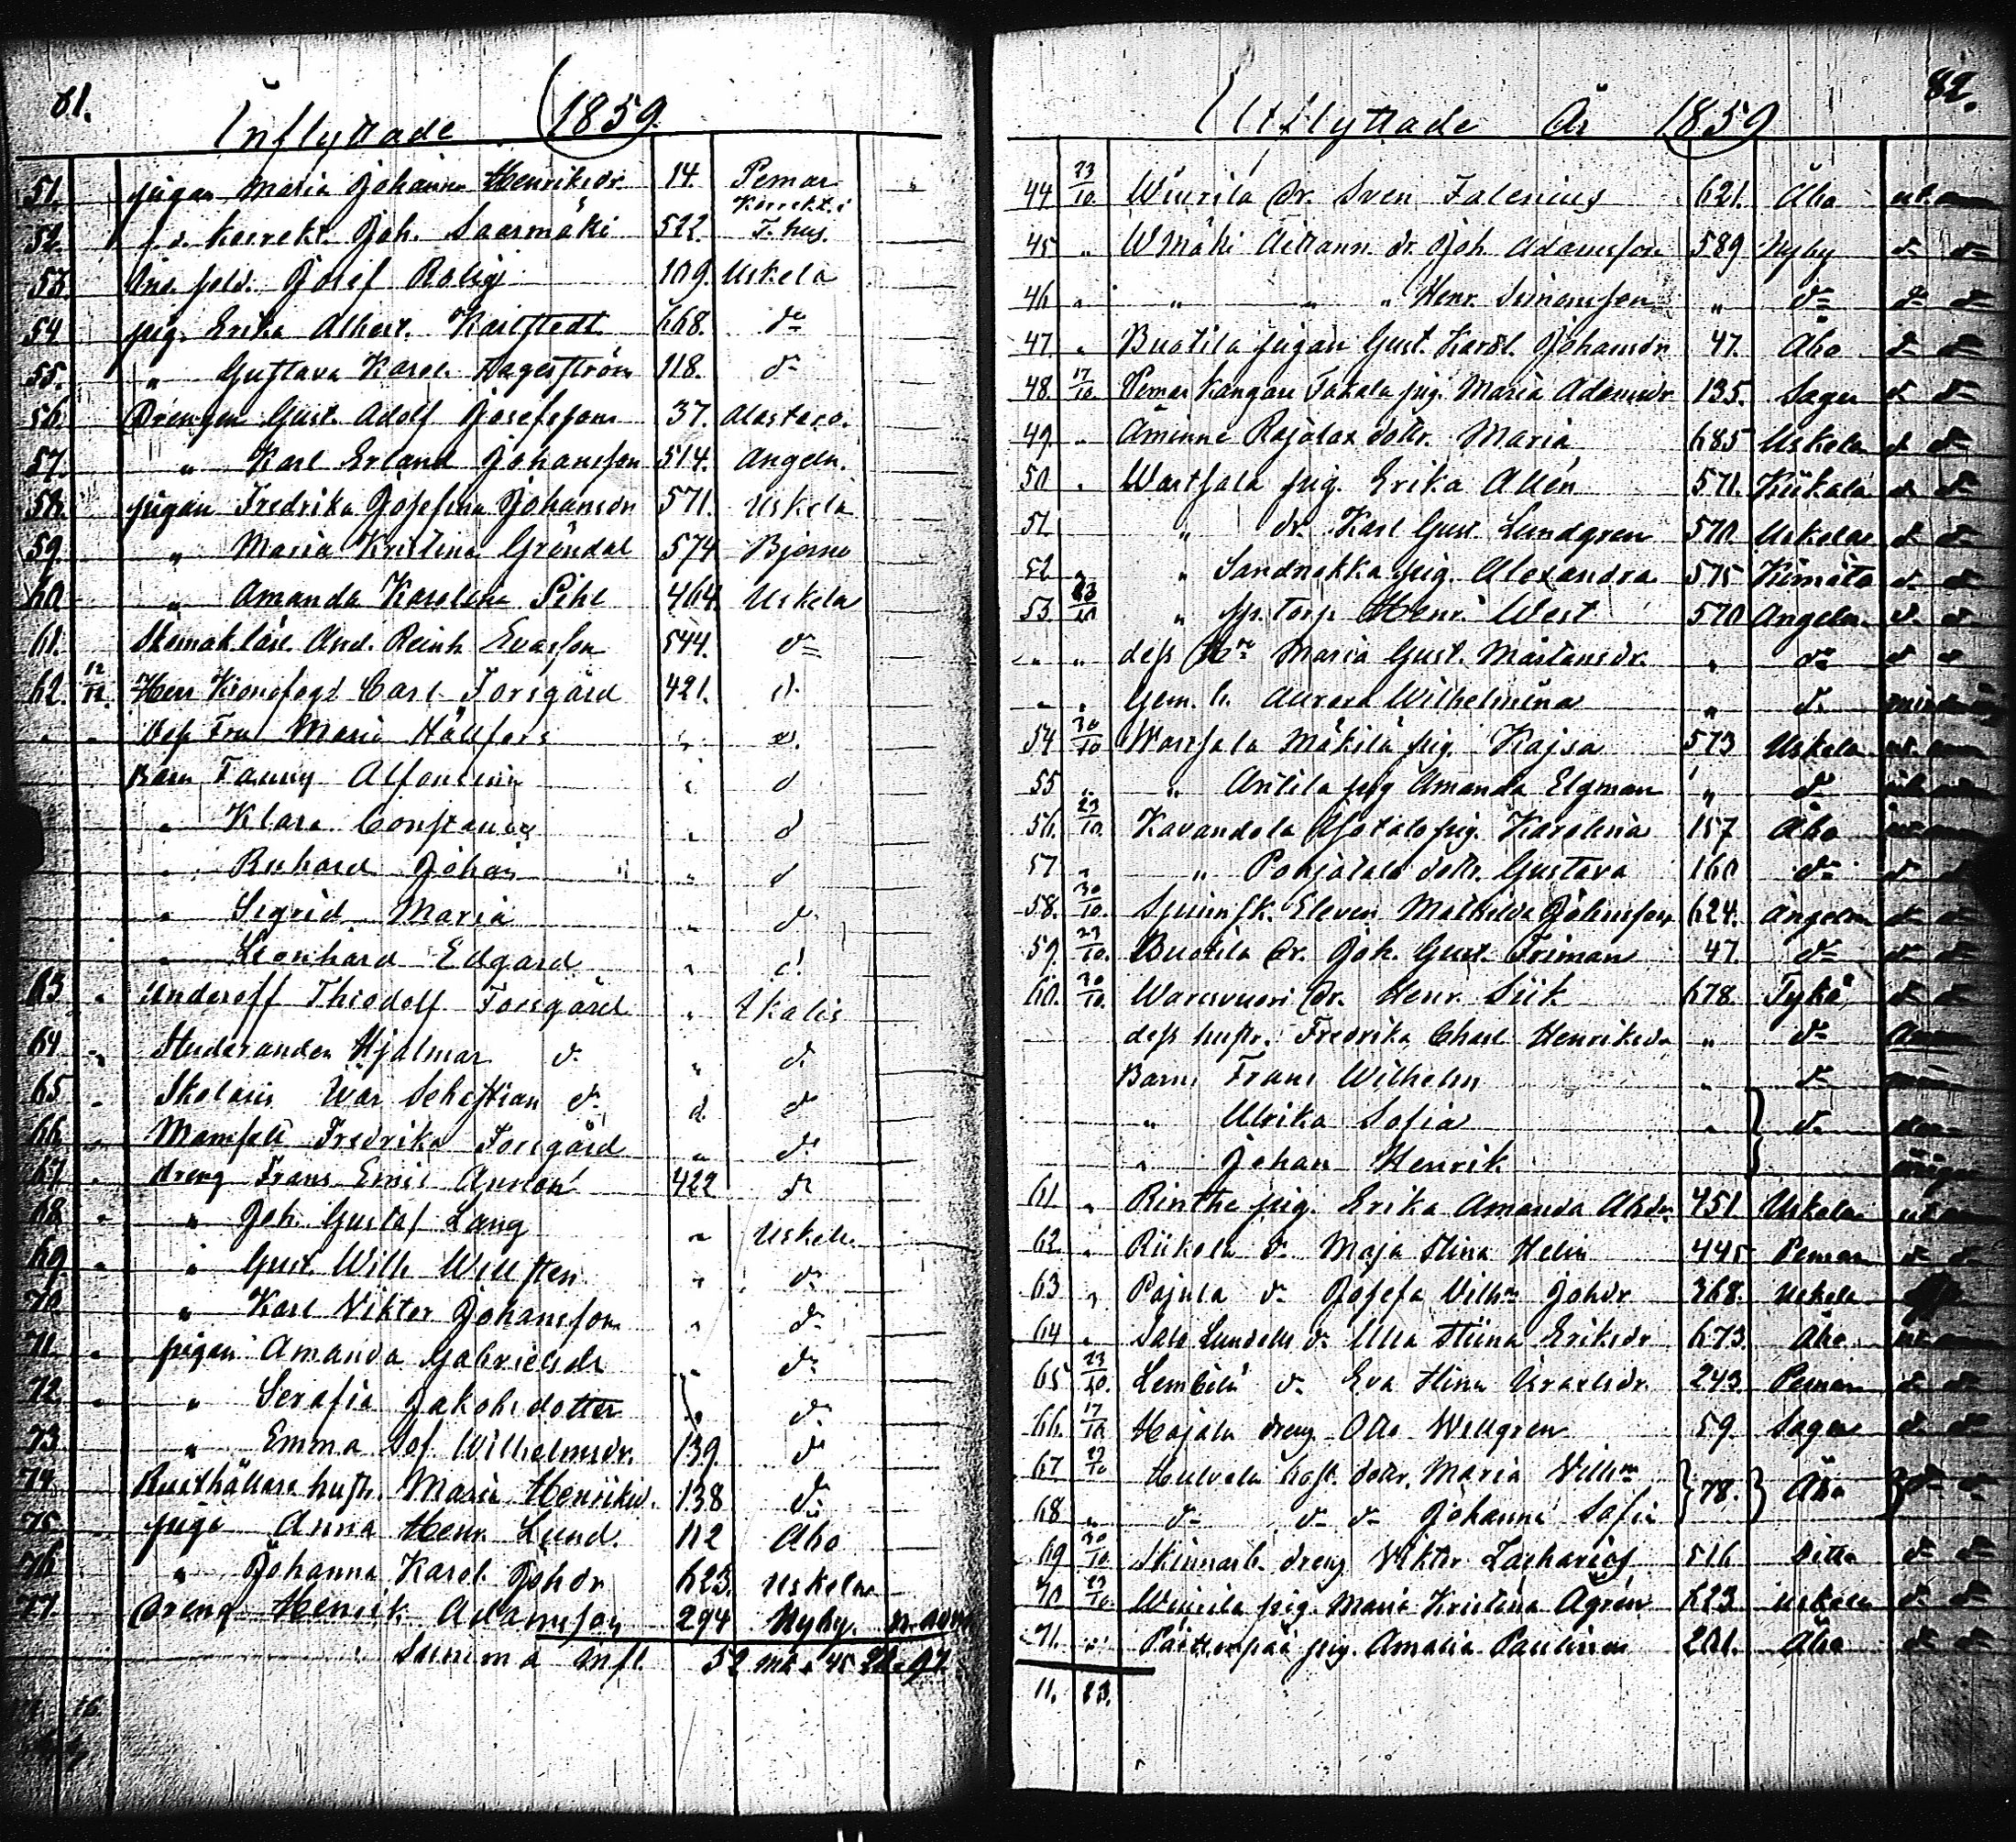 81.
Inflyttade 1859.
51. pigan Maria Johanna Henriksdr. 14. Pemar
52. f.d. korrekt. Joh. Saarmäki 522. Korrekt.i F. hus.
53. Ind. sold. Josef Rolig 109. Uskela
54. pig. Erika Albert. Karlstedt 668. do
55. " Gustava Karol. Hagerström 118. do
56. Drengen Gust. Adolf Josefsson 37. Alastaro.
57. " Karl Erland Johansson 514. Angeln.
58. pigan Fredrika Josefina Johansdr 571. Uskela
59. " Maria Kristina Gröndal 574 Bjerno
60 " Amanda Karolina Pihl 464. Uskela
61. Skomak.lärl. And. Reinh Evasson 544. do
62. 12/12. Herr Kronofogd Carl Forsgård 421. d.
" " Dess Fru Maria Hällfors " d.
Barn Fanny Alfonsina " d
" Klara Constance " d
" Richard Johan " d
" Sigrid Maria " d
" Leonhard Edgard " d.
63 " Underoff Thiodolf Forsgård " Ukalis
64 " Studeranden Hjalmar d. " d.
65 " Skolaris Ivar Sebastian d. d. d
66 " Mamsell Fredrika Forsgård " d.
67 " dreng Frans Emil 422 d
68 " " Joh. Gustaf Lang " Uskela
69 " " Gust. Wilh Willsten " d.
70. " " Karl Viktor Johansson " d.
71. " pigan Amanda Gabrielsdr " d.
72 " " Serafia Jakobsdotter " d.
73 " Emma Sof. Wilhelmsdr. 139. d
74. Rusthållare hustr. Maria Henriksd. 138 d.
75 " piga Anna Henr. Lund. 112 Åbo
76 " Johanna Karol. Johdr 623. Uskela
77. Dreng Henrik Adamsson 294 Nyby.
Summa Infl. 52 mk. 45 qk. 97.
82.
Utflyttade År 1859
44 23/10. Wiurila Dr. Sven Falenius 621. Åbo utan
45 " WMäki Aitkann. dr. Joh. Adamsson 589 Nyby d d
46 " " " " Henr. Simonsson " d d d
47 " Buotila pigan Gust. Karol. Johansdr 47. Åbo d d
48. 17/10. Pemar Kangare Takala pig. Maria Adamsdr 135. Sagu d d
49. " Åminne Rajalax dottr. Maria 685 Uskela d d
50 " Wartsala pig. Erika Allén 571. Kiikala d d
51 " dr. Karl Gust. Lundgren 570. Uskela d d
52 " " Sandnokka pig. Alexandra 575 Kimito d d
53 23/10 " sp. torp Henr. West 570 Angeln. d. d.
" " dess Hu Maria Gust. Mårtensdr. " do d d
" " Gem. b. Aurora Wilhelmina " d.
54 30/10 Wartsala Mäkilä pig. Kajsa 573 Uskela utan
55 " " Anttila pig Amanda Elgman " d
56. 23/10. Kavandola Alotalo pig. Karolina 157 Åbo utan
57 " " Pohjatalo dottr. Gustava 160 do d d
58. 30/10. Spinnsk. Eleven Mathilda Johnsson 624. Angeln d d
59. 23/10. Buotila Dr. Joh. Gust. Friman 47. do d d
60. 30/10. Waresvuori Dr. Henr. Siik 678. Tykö d d
dess hustr. Fredrika Charl Henriksdr " do
Barn Frans Wilhelm " do
" Ulrika Sofia " d
" Johan Henrik
61. " Rinthe pig. Erika Amanda Ahdr 451 Uskela utan
62 " Riikola do Maja Stina Helin 445 Pemar d d
63 " Pajula do Josefa Vilhma Johdr 368. Uskela
64 " Salo Lundells do Ulla Stiina Eriksdr 673. Åbo utan
65 23/10. Lembilä do Eva Stina Israelsdr. 243. Pemar d d
66. 17/10 Hajala dreng Otto Wellgren 59. Sagu d d
67 23/10 Hulvela hofl. dottr. Maria Vilhma } 78. } Åbo } d d
68 " do do do Johanna Sofia
69 30/10. Skinnarb. dreng Viktor Zacharias 516 ditto d d
70 23/10. Wiurila pig. Maria Kristina Ågrén 623 Uskela d d
71. " pig. Amalia Paulina 201. Åbo d d
11. 23.